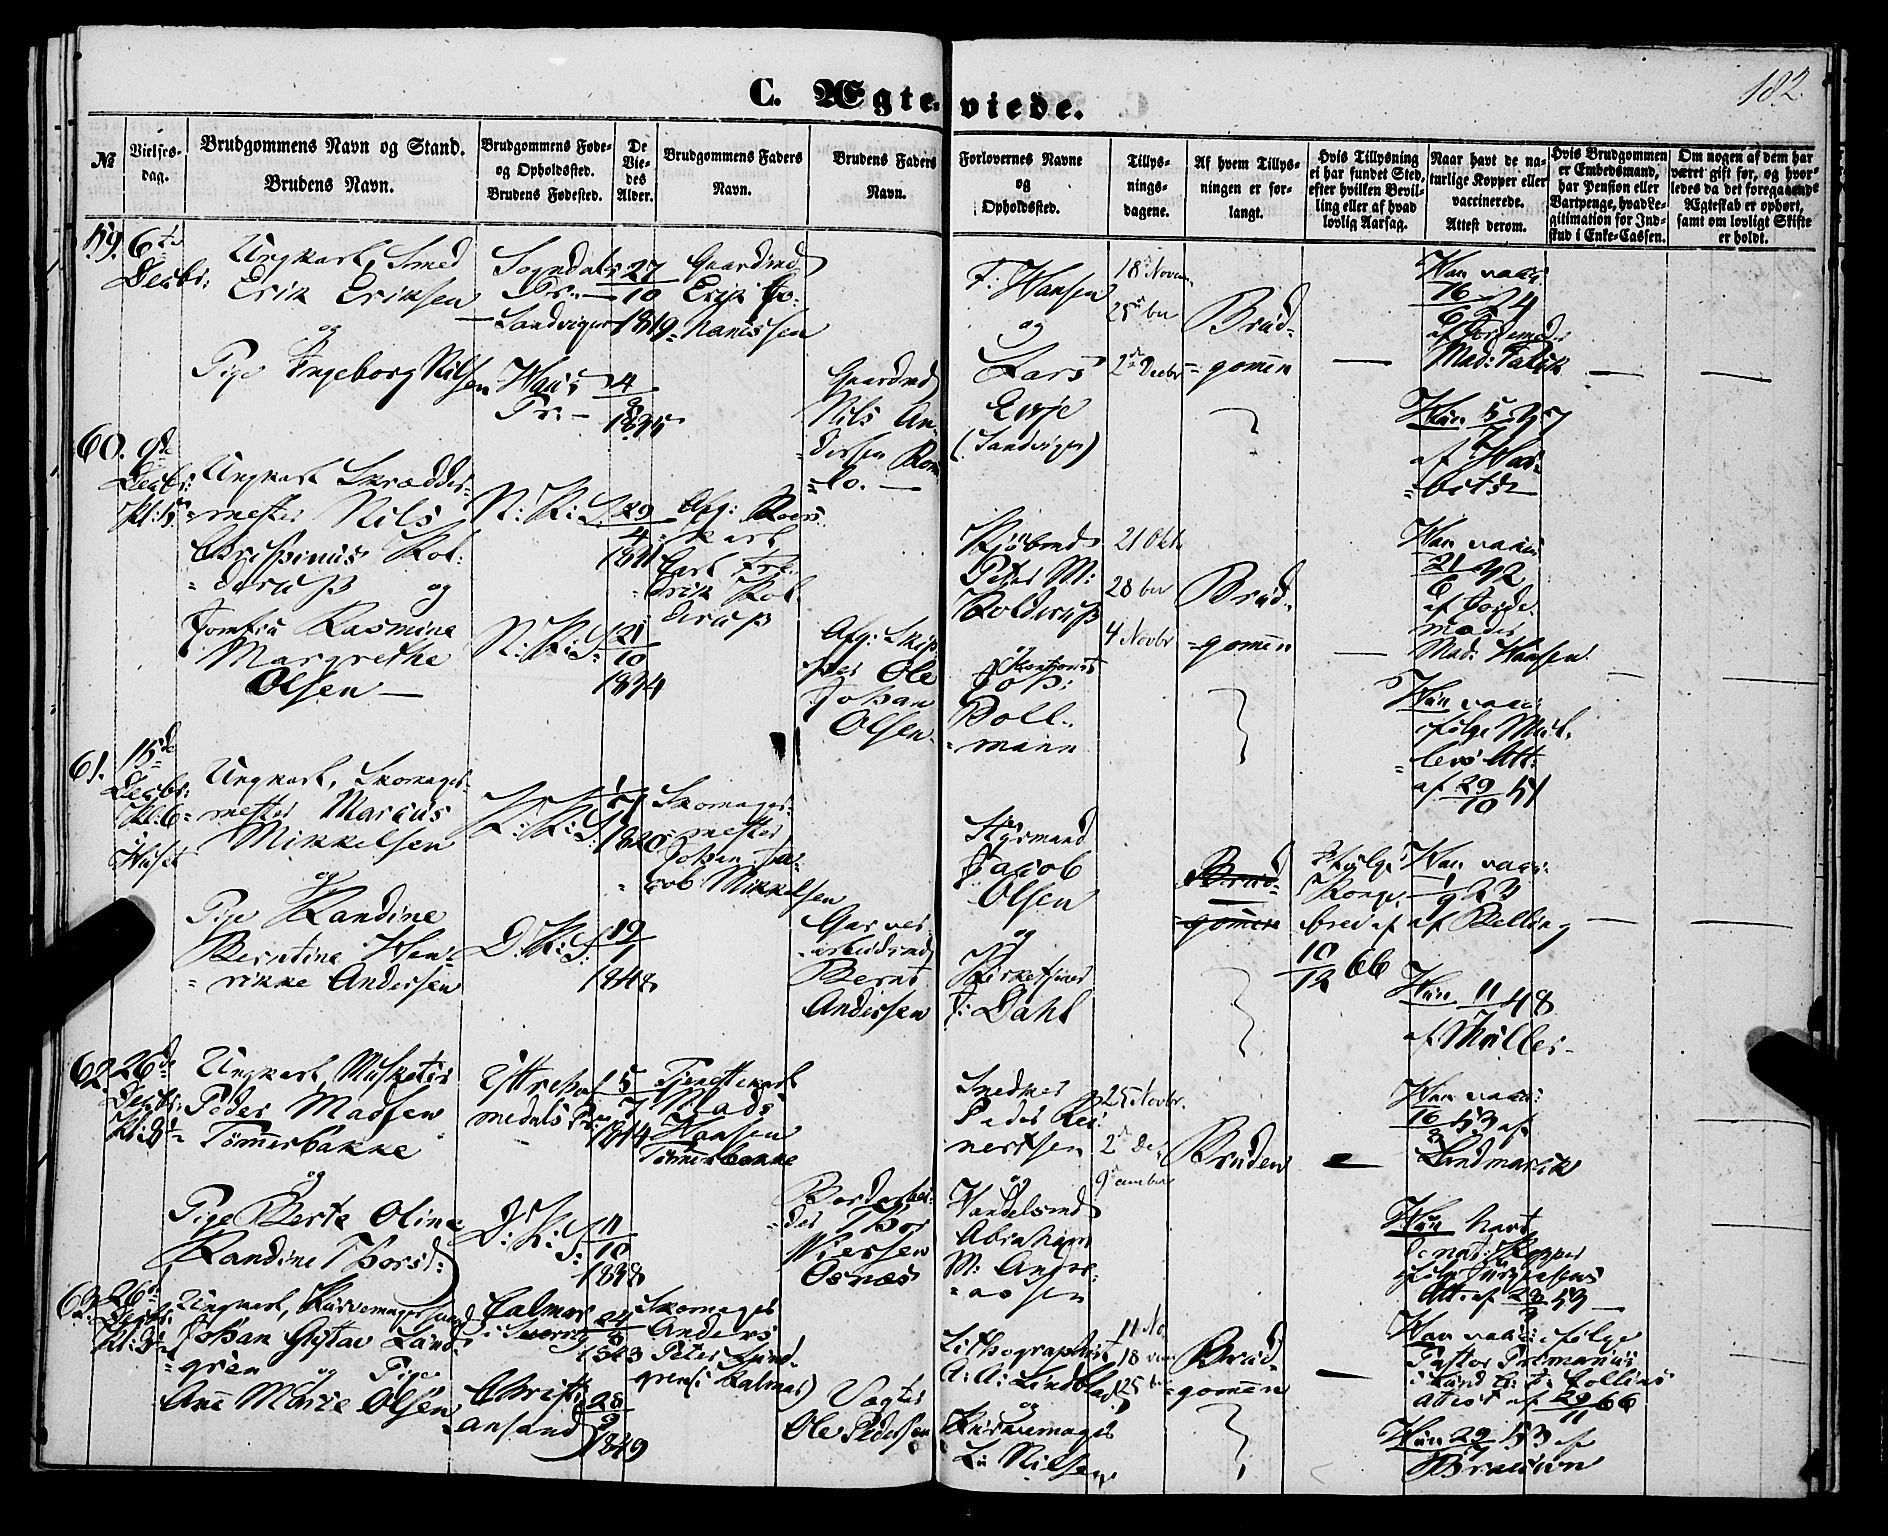 182
C. Ægteviede.
No
Vielses-
dag.
Brudgommens Navn og Stand.
Brudens Navn.
Brudgommens Føde-
og Opholdssted.
Brudens Fødested.
De
Vie-
des
Alder.
Brudgommens Faders
Navn.
Brudens Faders
Navn.
Forlovernes Navne
og
Opholdssted.
Tillys-
nings-
dagene.
Af hvem Tillys-
ningen er for-
langt.
Hvis Tillysning
ei har fundet Sted,
efter hvilken Bevil-
ling eller af hvad
lovlig Aarsag.
Naar havt de na-
turlige Kopper eller
vaccinerede.
Attest derom.
Hvis Brudgommen
er Embedsmand,
har Pension eller
Vartpenge, hvad Le-
gitimation for Ind-
skud i Enke-Cassen.
Om nogen af dem har
været gift før, og hvor-
ledes da det foregaaende
Ægteskab er ophørt,
samt om lovligt Skifte
er holdt.
59.
6te
Decbr:
Ungkarl, Smed
Erik Eriksen
og
Pige Ingeborg Nilsen
Sogndals
Pr. —
Sandvigen
Haus
Pr. —
27
10
1819
4
8
Gaardmd
Erik Jo-
hannessen
Gaardmd
Nils An-
dersen Rom-
lo. —
F: Hansen
og
Lars
Evje
(Sandvigen)
18 Novem
25 ber
2 Decbr
Brud-
gomen
Han vacc:
16
24
6
Mad: Falck
Hun 5
7
af Har-
bitz
60.
9de
Decbr:
Kl: 5
Ungkarl Skrædder-
mester Nils
Chrispinus Kol-
derup og
Jomfru Rasmine
Margrethe
Olsen —
N: K: S:
N: K: S:
29
4
1841
21
10
1844
Carl Fre-
drik Kol-
derup
Afg: Skip-
per Ole
Johan
Olsen
Kjøbmd
Peter M:
Kolderup
Joh:
Boll-
mann
21 Okt
28 ber
4 Novbr
Brud-
gomen
Han vacc:
21 42
6
af Jorde-
moder
Mad: Hansen
Hun vacc:
ifølge Mül-
lers Att:
af 29 51
10
61.
15de
Decbr:
Kl: 6
Huset
Ungkarl, Skomager-
mester Marcus
Mikkelsen
og
Pige Randine
Berntine Hen-
rikke Andersen
K: K: S:
D: K: S:
1820
19
1
1848
Skomager-
mester
Johan Ja-
cob Mikkelsen
Garver-
arbeidsmd
Bernt
Andersen
Styrmand
Jacob
Olsen
og
Kirketjener
J: Dahl
Brud-
gomen
Ifølge
Konge-
brev af
10 66
12
Han vacc:
1
9 23
af Belling
Hun 11 48
af Müller
62.
26de
Decbr:
Kl: 8
Ungkarl, Musketer
Peder Madsen
Tømmerbakke
og
Pige Berte Oline
Randine Thorsd:
Yttre Hol-
medals Pr.
D: K: S:
5
7
1844
11
10
Tjenestekarl
Mads
Hansen
Tømmerbakke
Bordarbei-
der Thor
Osnæs
Snedker
Peder Rei-
nertsen
og
Handelsmd
Abraham
M: Andre-
asen
25 Novbr.
2 De-
9 cember
Bruden
Han vacc:
16 53 af
8
Landmark
Hun havt
de nat: Kopper
Att: af 28 59
63.
26de
Decbr:
Kl: 8
Ungkarl, Kurvemagersvend
Johan Gustav Lund-
gren og Pige
Ane Marie Olsen
Calmar
i Sverrig
Christi-
ansand
24
8
1843
28
9
1849
Skomager
Anders
Peter Lund-
gren (i Kalmar)
Vægter
Ole Pedersen
Lithographist
A: A: Lindblad
og
Kurvemager
L: Nilsen
11 No-
18 vem
25 ber
Brud-
gomen
Han vacc: ifølge
Pastor
attest af 29 66
11
Hun 29 53 af
7